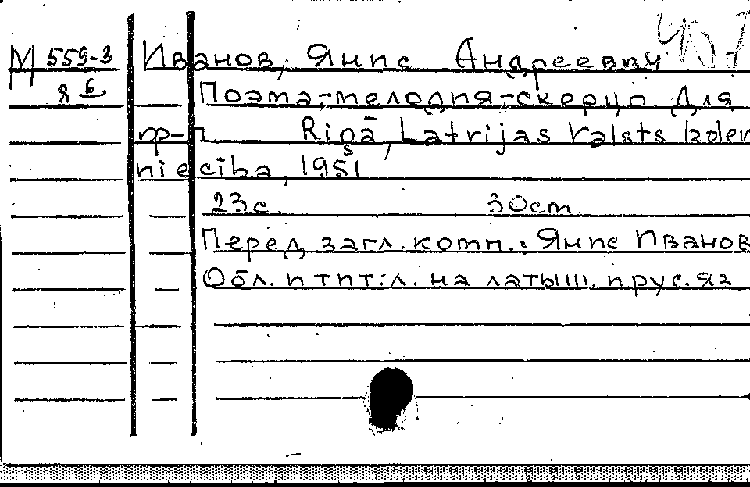 М 559-3 Иванов, Янис Андреевич
8 6 Поэма,-мелодия-скерцо для
Rīgā, Latvijas Valsts Izdev
niecība, 1951
23с 30cm
Перед загл. комп.: Янис Иванов
Обл. и тит. л. на латыш. и рус. яз